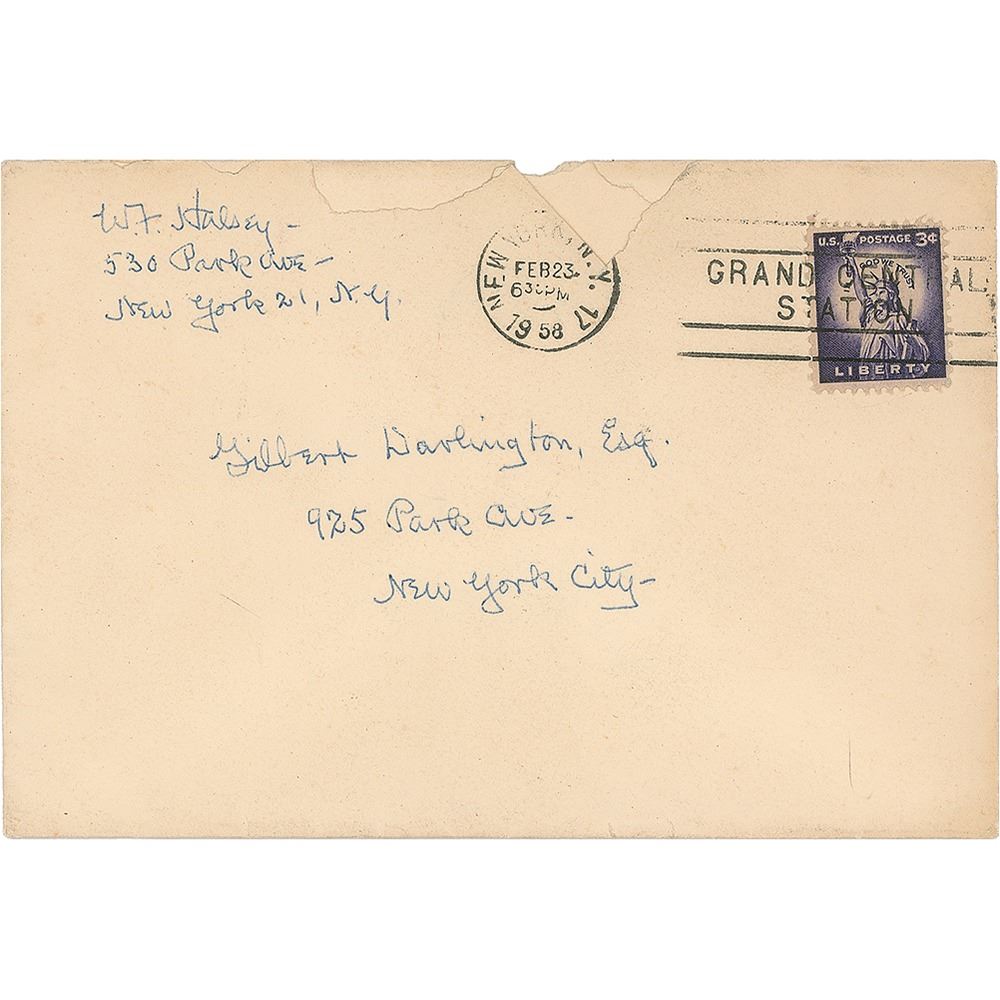 W.F. Halsey -
530 Park Ave -
New York 21, N.Y.
NEW YORK, N.Y. 17
FEB 23
630PM
1958
GRAND CENTRAL
STATION
U.S. POSTAGE 3¢
IN GOD WE TRUST
LIBERTY
Gilbert Darlington, Esq.
925 Park Ave -
New York City -